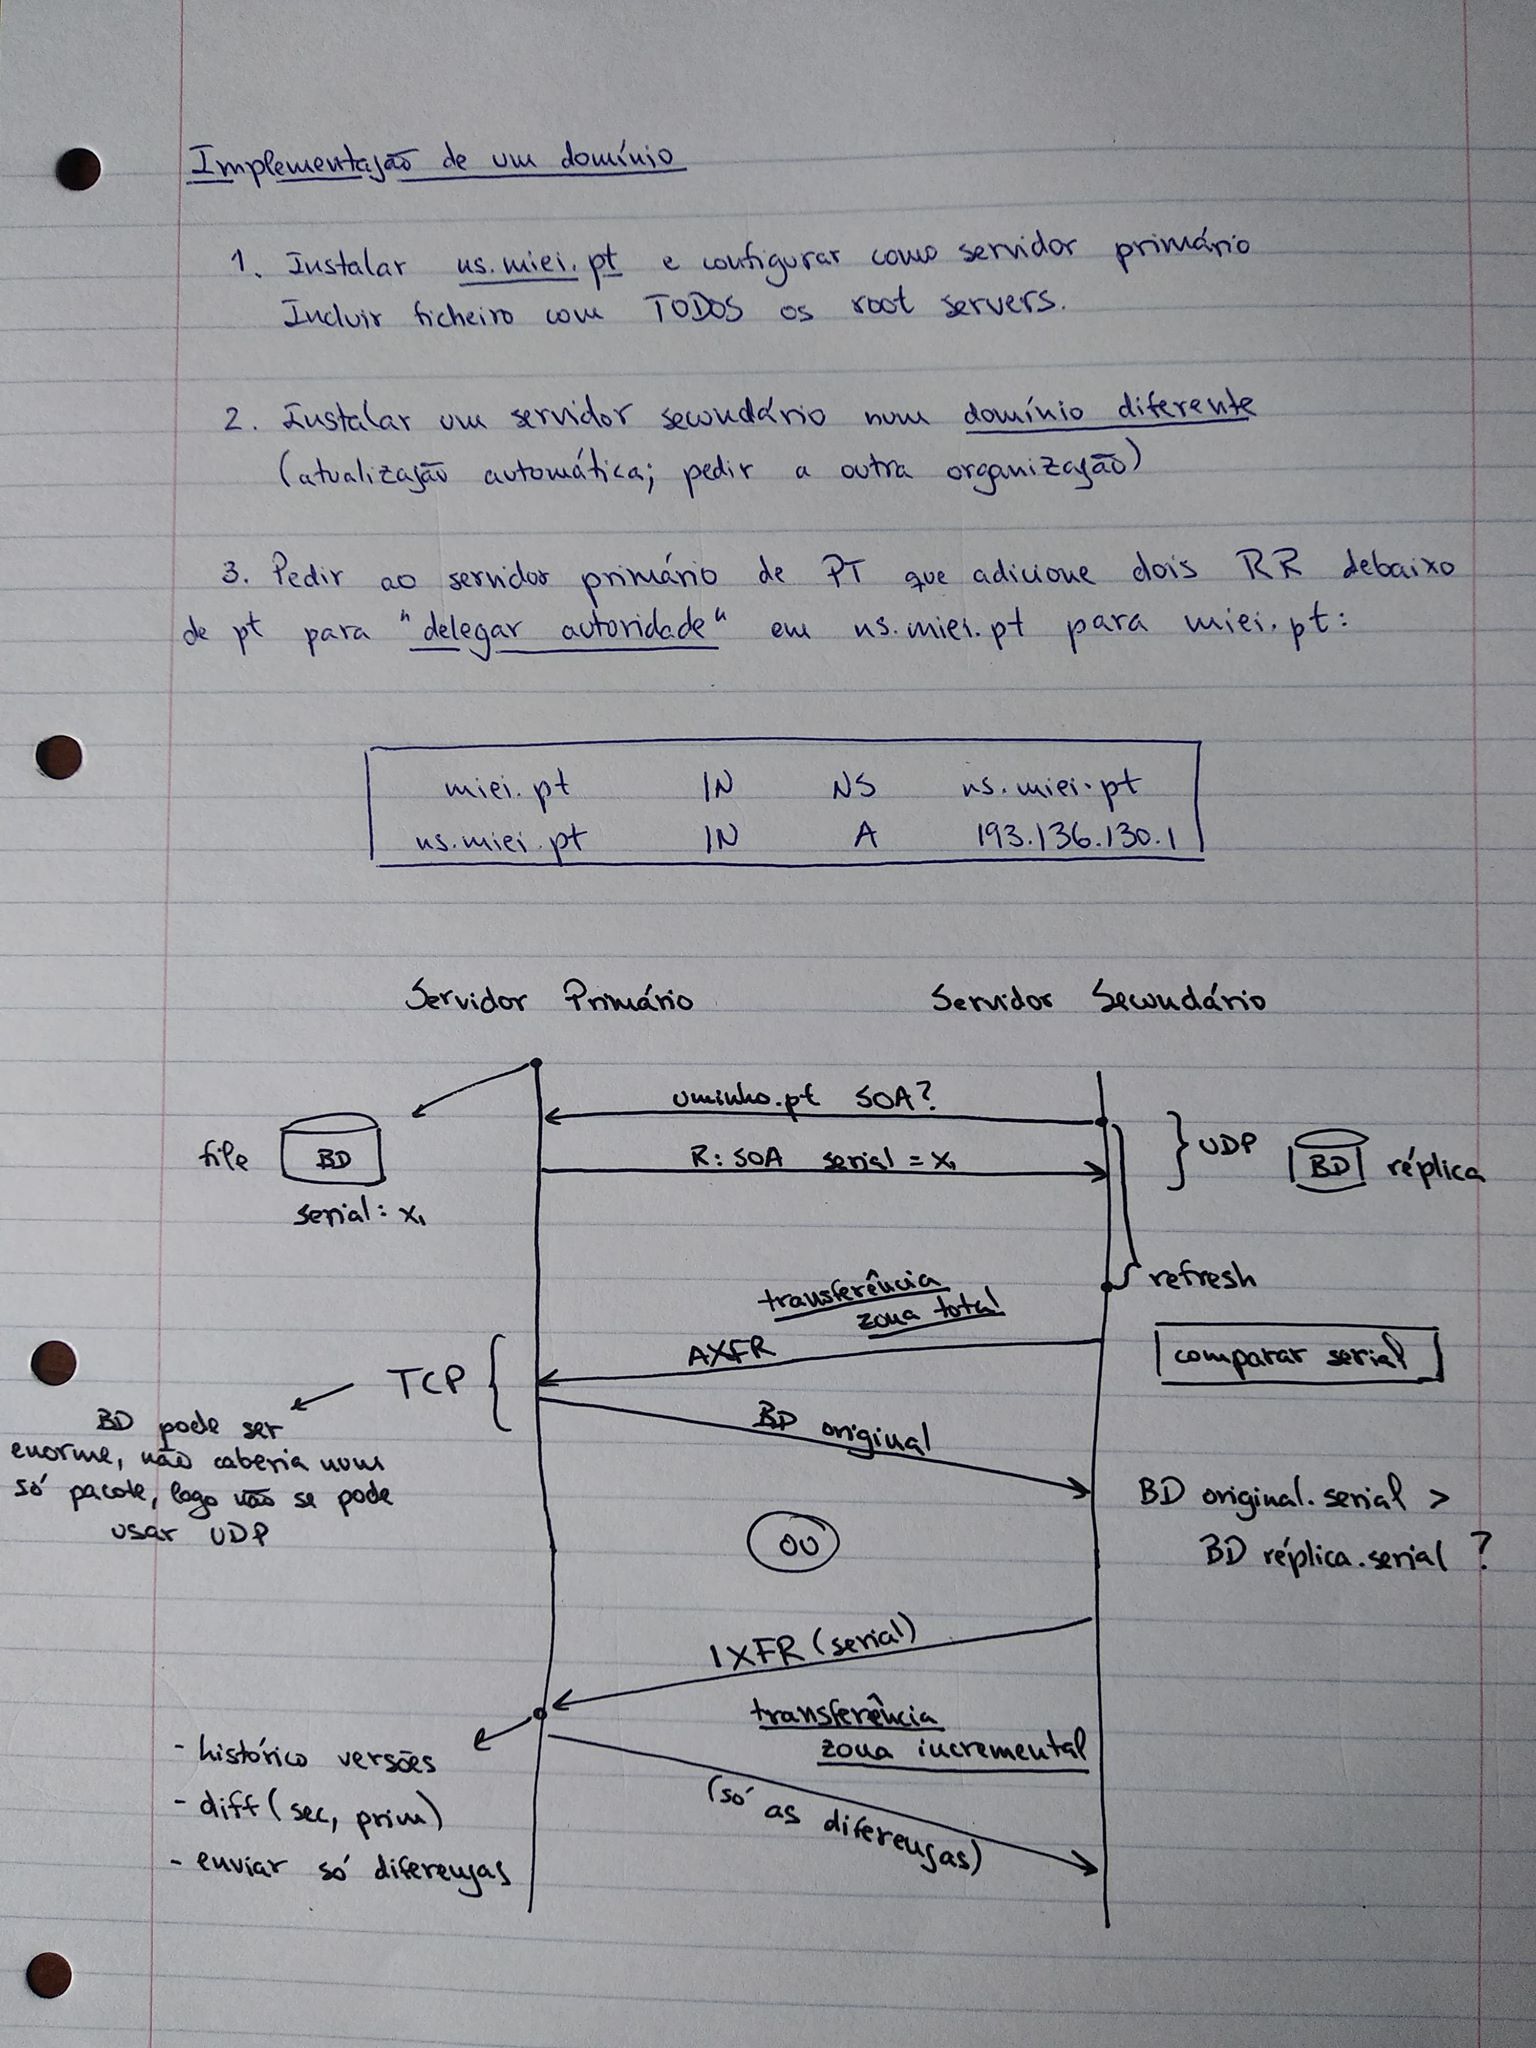 Implementação de um domínio
1. Instalar ns.miei.pt e configurar como servidor primário
Incluir ficheiro com TODOS os root servers.
2. Instalar um servidor secundário num domínio diferente
(atualização automática; pedir a outra organização)
3. Pedir ao servidor primário de PT que adicione dois RR debaixo
de pt para "delegar autoridade" em ns.miei.pt para miei.pt:
miei.pt IN NS ns.miei.pt
ns.miei.pt IN A 193.136.130.1
Servidor Primário Servidor Secundário
uminho.pt SOA?
file BD
R: SOA serial = x₁
UDP
BD réplica
serial: x₁
refresh
transferência
zona total
AXFR
comparar serial
TCP
BD pode ser
enorme, não caberia num
só pacote, logo não se pode
usar UDP
BD original
BD original.serial >
BD réplica.serial ?
OU
IXFR (serial)
transferência
zona incremental
(só as diferenças)
- histórico versões
- diff (sec, prim)
- enviar só diferenças